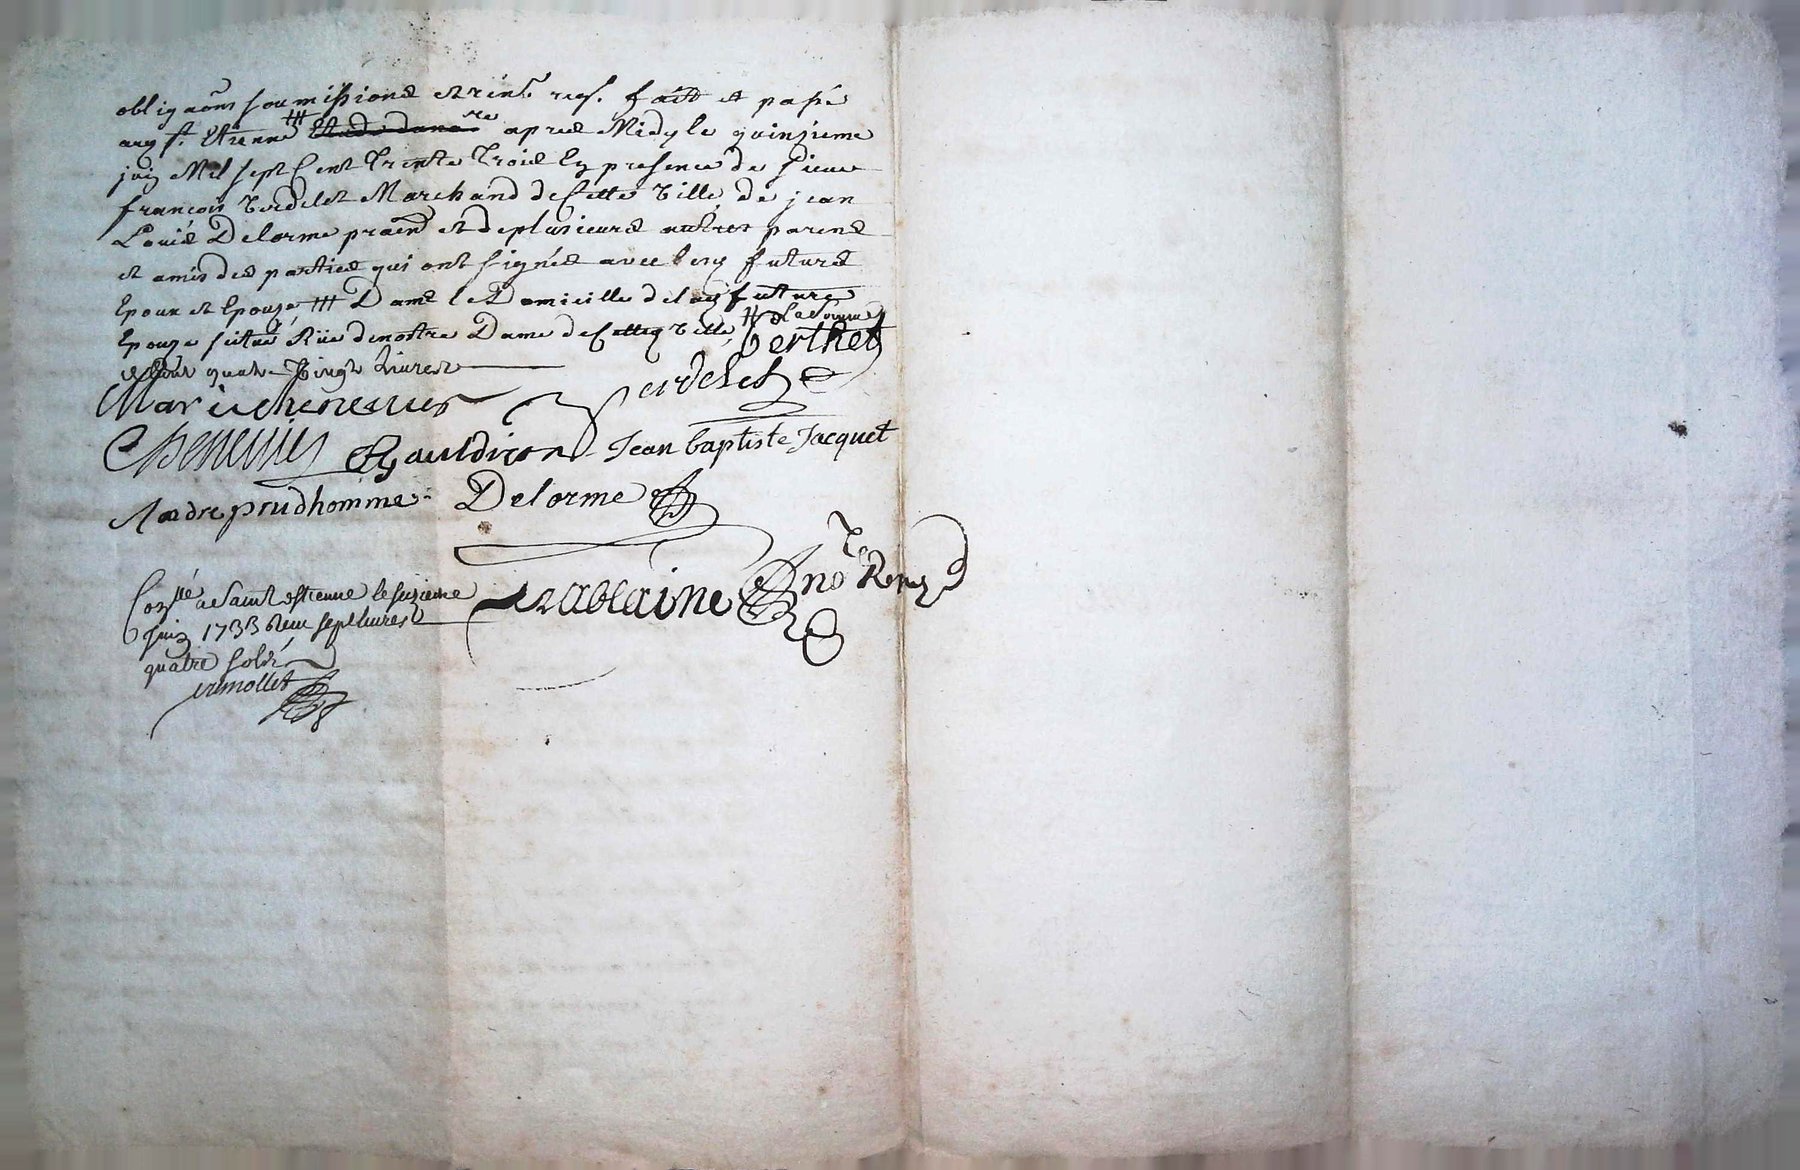 obligaõns soumissions et rens. reqs. fait et passé
aud st. Etienne ### apres Midy le quinzieme
juin Mil sept Cent Trente Trois En presence de sieur
francois Verdelet Marchand de Cette Ville, de jean
Louis Delorme praen et de plusieurs autres parens
et amis des parties qui ont signés avec les futurs
Epoux et Epouze, ### Dans le Domicille de lad future
Epouze scitué Rüe de nostre Dame de Cette Ville, # de la somme
de Cent quatre Vingt Livres
Berthet
Marie cheneuier
Verdelet
Cheneuier Gauldiron Jean baptiste Jacquet
Andre prudhomme Delorme
Lablaine nore Royal
Conllé a Saint estienne le seizieme
Juin 1733 Receu sept liures
quatre sols
cremollet